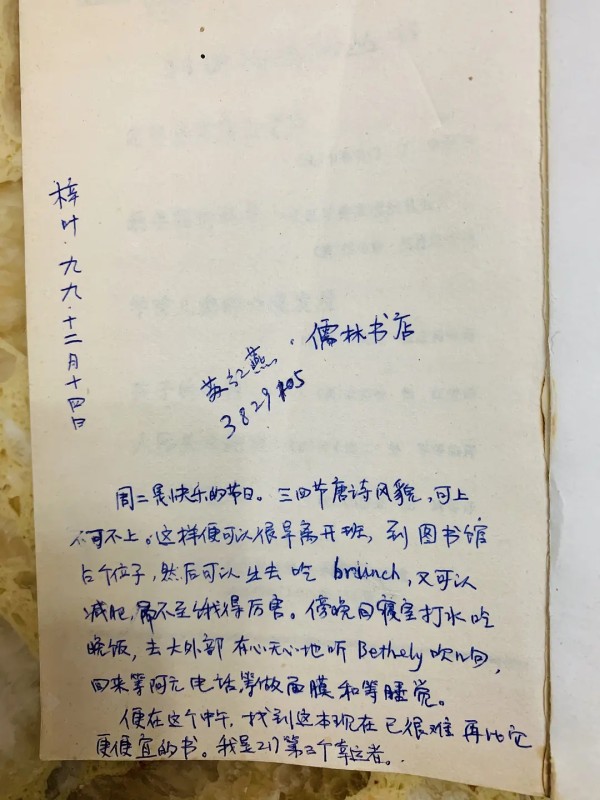 梓叶·九九·十二月十四日
儒林书店
苏红燕
3829
周二是快乐的节日。三四节唐诗风貌,可上
可不上。这样便可以很早离开班,到图书馆
占个位子,然后可以出去吃 braünch,又可以
减肥,而不至饿得厉害。傍晚回寝室打水吃
晚饭,去大外部有心无心地听 Bethely 吹几句,
回来等阿元电话,等做面膜和等睡觉。
便在这个中午,找到这本现在已很难再比它
更便宜的书。我是217第三个幸运者。